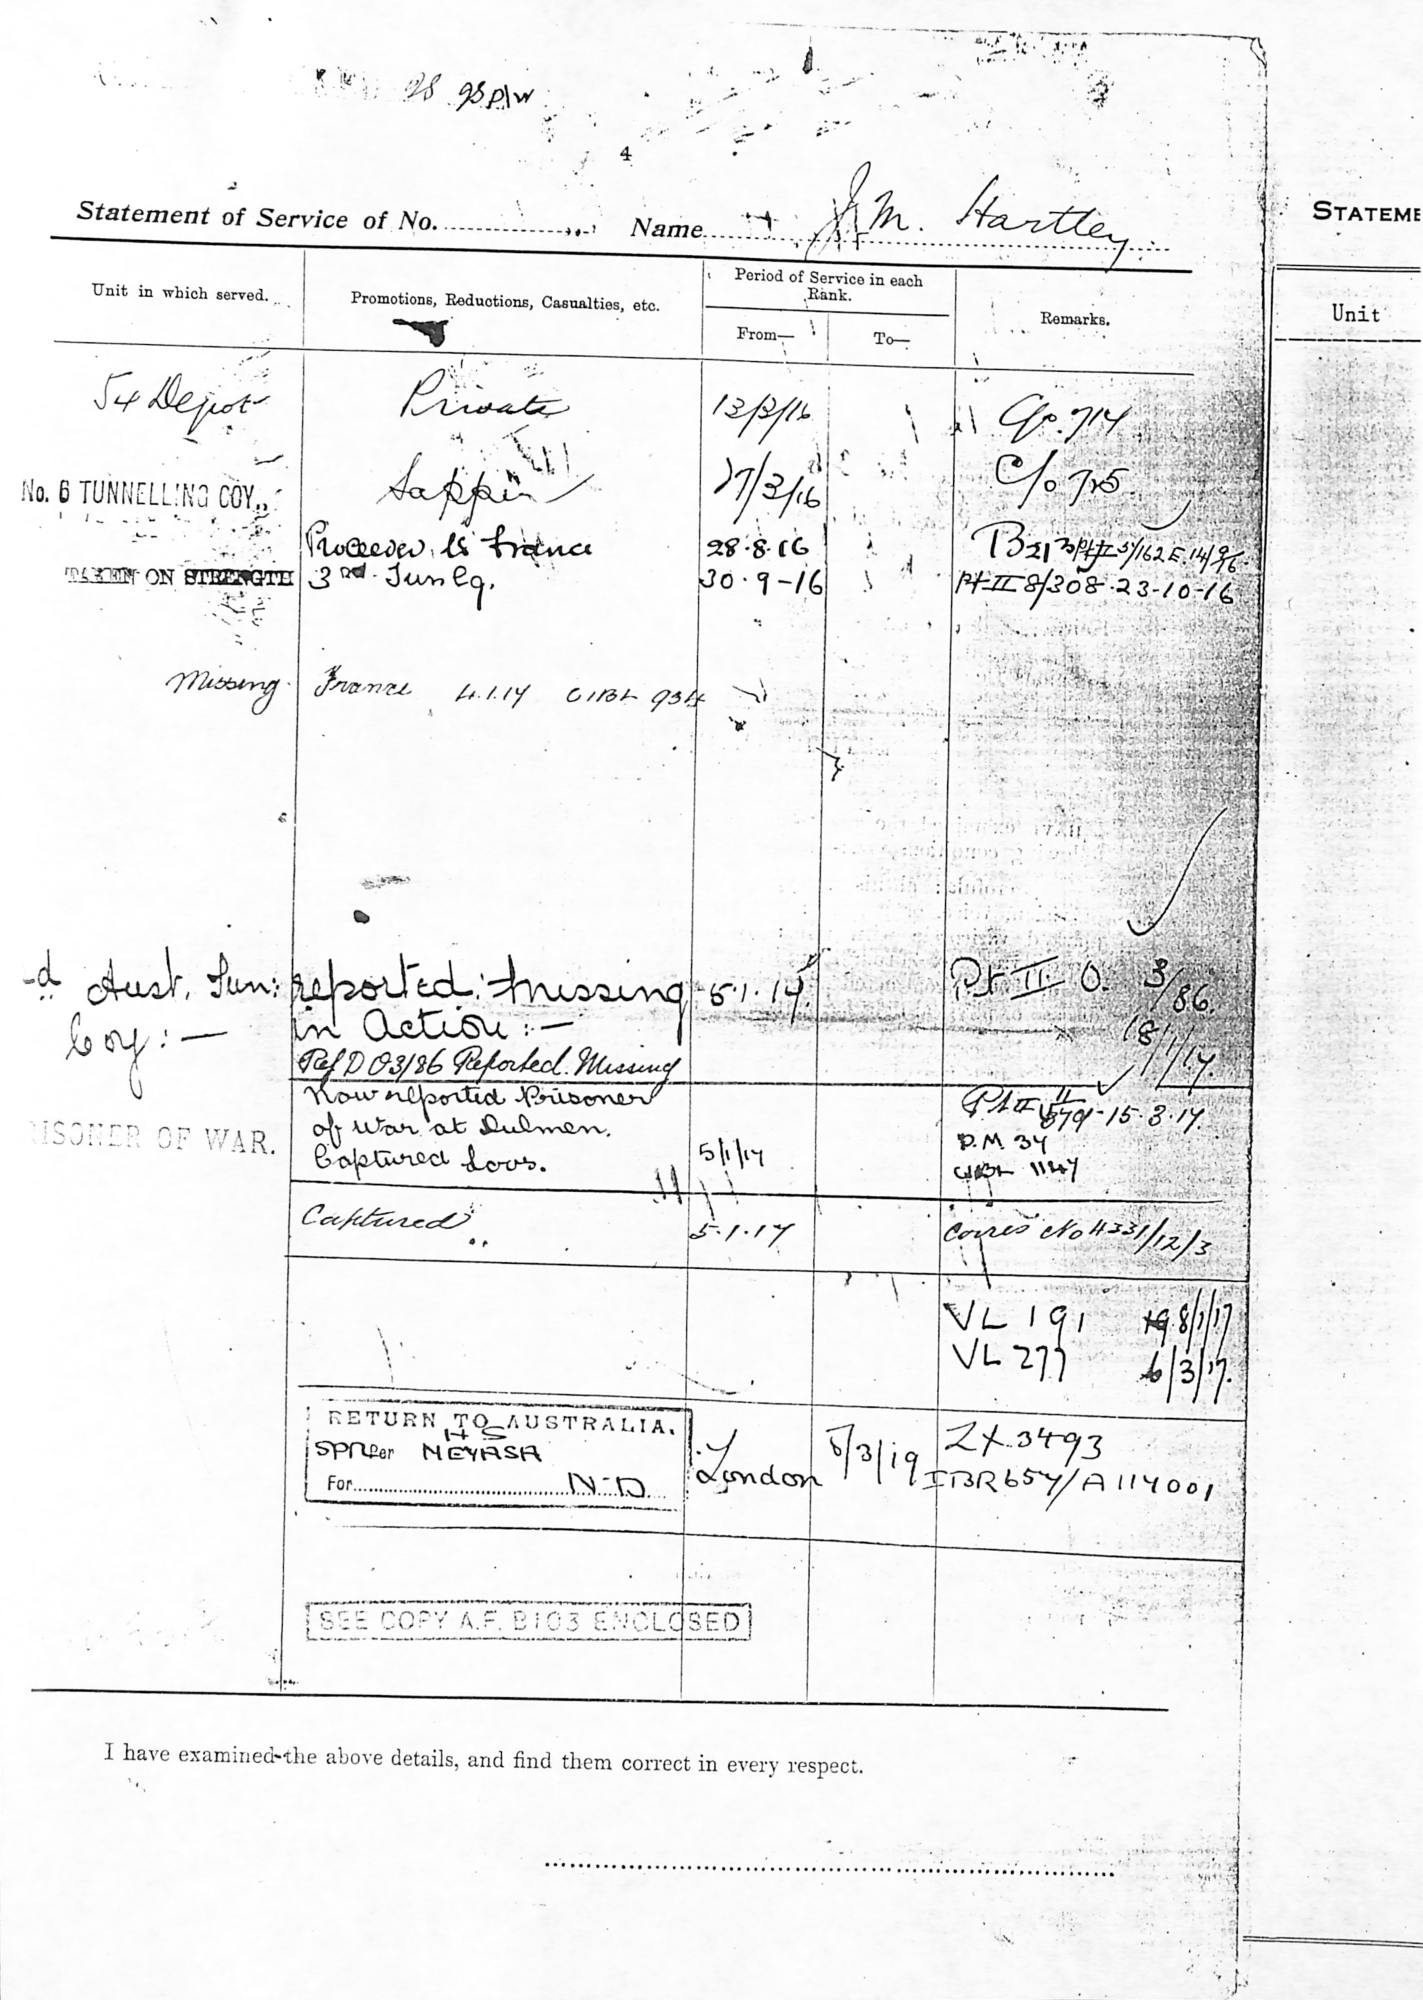 98 P/W
4
Statement of Service of No. Name J M. Hartley
STATEME
Unit in which served.
Promotions, Reductions, Casualties, etc.
Period of Service in each Rank.
From—
To—
Remarks.
Unit
54 Depot Private 13/3/16
No. 6 TUNNELLING COY. Sapper 17/3/16
Proceeded to France 28.8.16
TAKEN ON STRENGTH 3rd Tun Cy. 30.9-16 Pt II 8/308.23-10-16
Missing France 4.1.17 CIBL 934
Aust. Tun: reported: missing 5.1.17. Pt. II. O. 3/86.
Coy:— in Action:— 18/1/17.
Ref D O3/86 Reported Missing
Now reported Prisoner
of war at Dulmen.
PRISONER OF WAR.
15.3.17
D.M. 34
Captured Loos. 5/1/17
CIBL 1147
Captured 5.1.17 Corres No 4331/12/3
VL 191 8/1/17
VL 277 6/3/17.
RETURN TO AUSTRALIA.
HS
SPR per NEYASA
For N-D
London 5/3/19 ZX 3493
IBR657/A114001
SEE COPY A.F. B103 ENCLOSED
I have examined the above details, and find them correct in every respect.